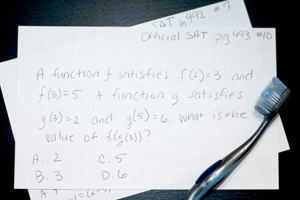 SAT pg 442 #7
Official SAT pg 493 #10
A function f satisfies f(2)=3 and
f(3)=5. A function g satisfies
g(3)=2 and g(5)=6. What is the
value of f(g(3))?
A. 2 C. 5
B. 3 D. 6
A.